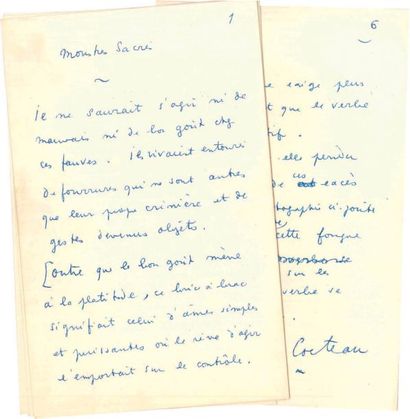 1
Monstres Sacrés
Il ne saurait s'agir ni de
mauvais ni de bon goût chez
ces fauves. Ils vivaient entourés
de fourrures qui ne sont autres
que leur propre crinière et de
gestes devenus objets.
[Outre que le bon goût mène
à la platitude, ce bric à brac
signifiait celui d'âmes simples
et puissantes où le rêve d'agir
l'emportait sur le contrôle.
6
exige plus
que le verbe
elle perd
de ces excès
ci-jointe
cette fougue
sur les
verbe se
Cocteau